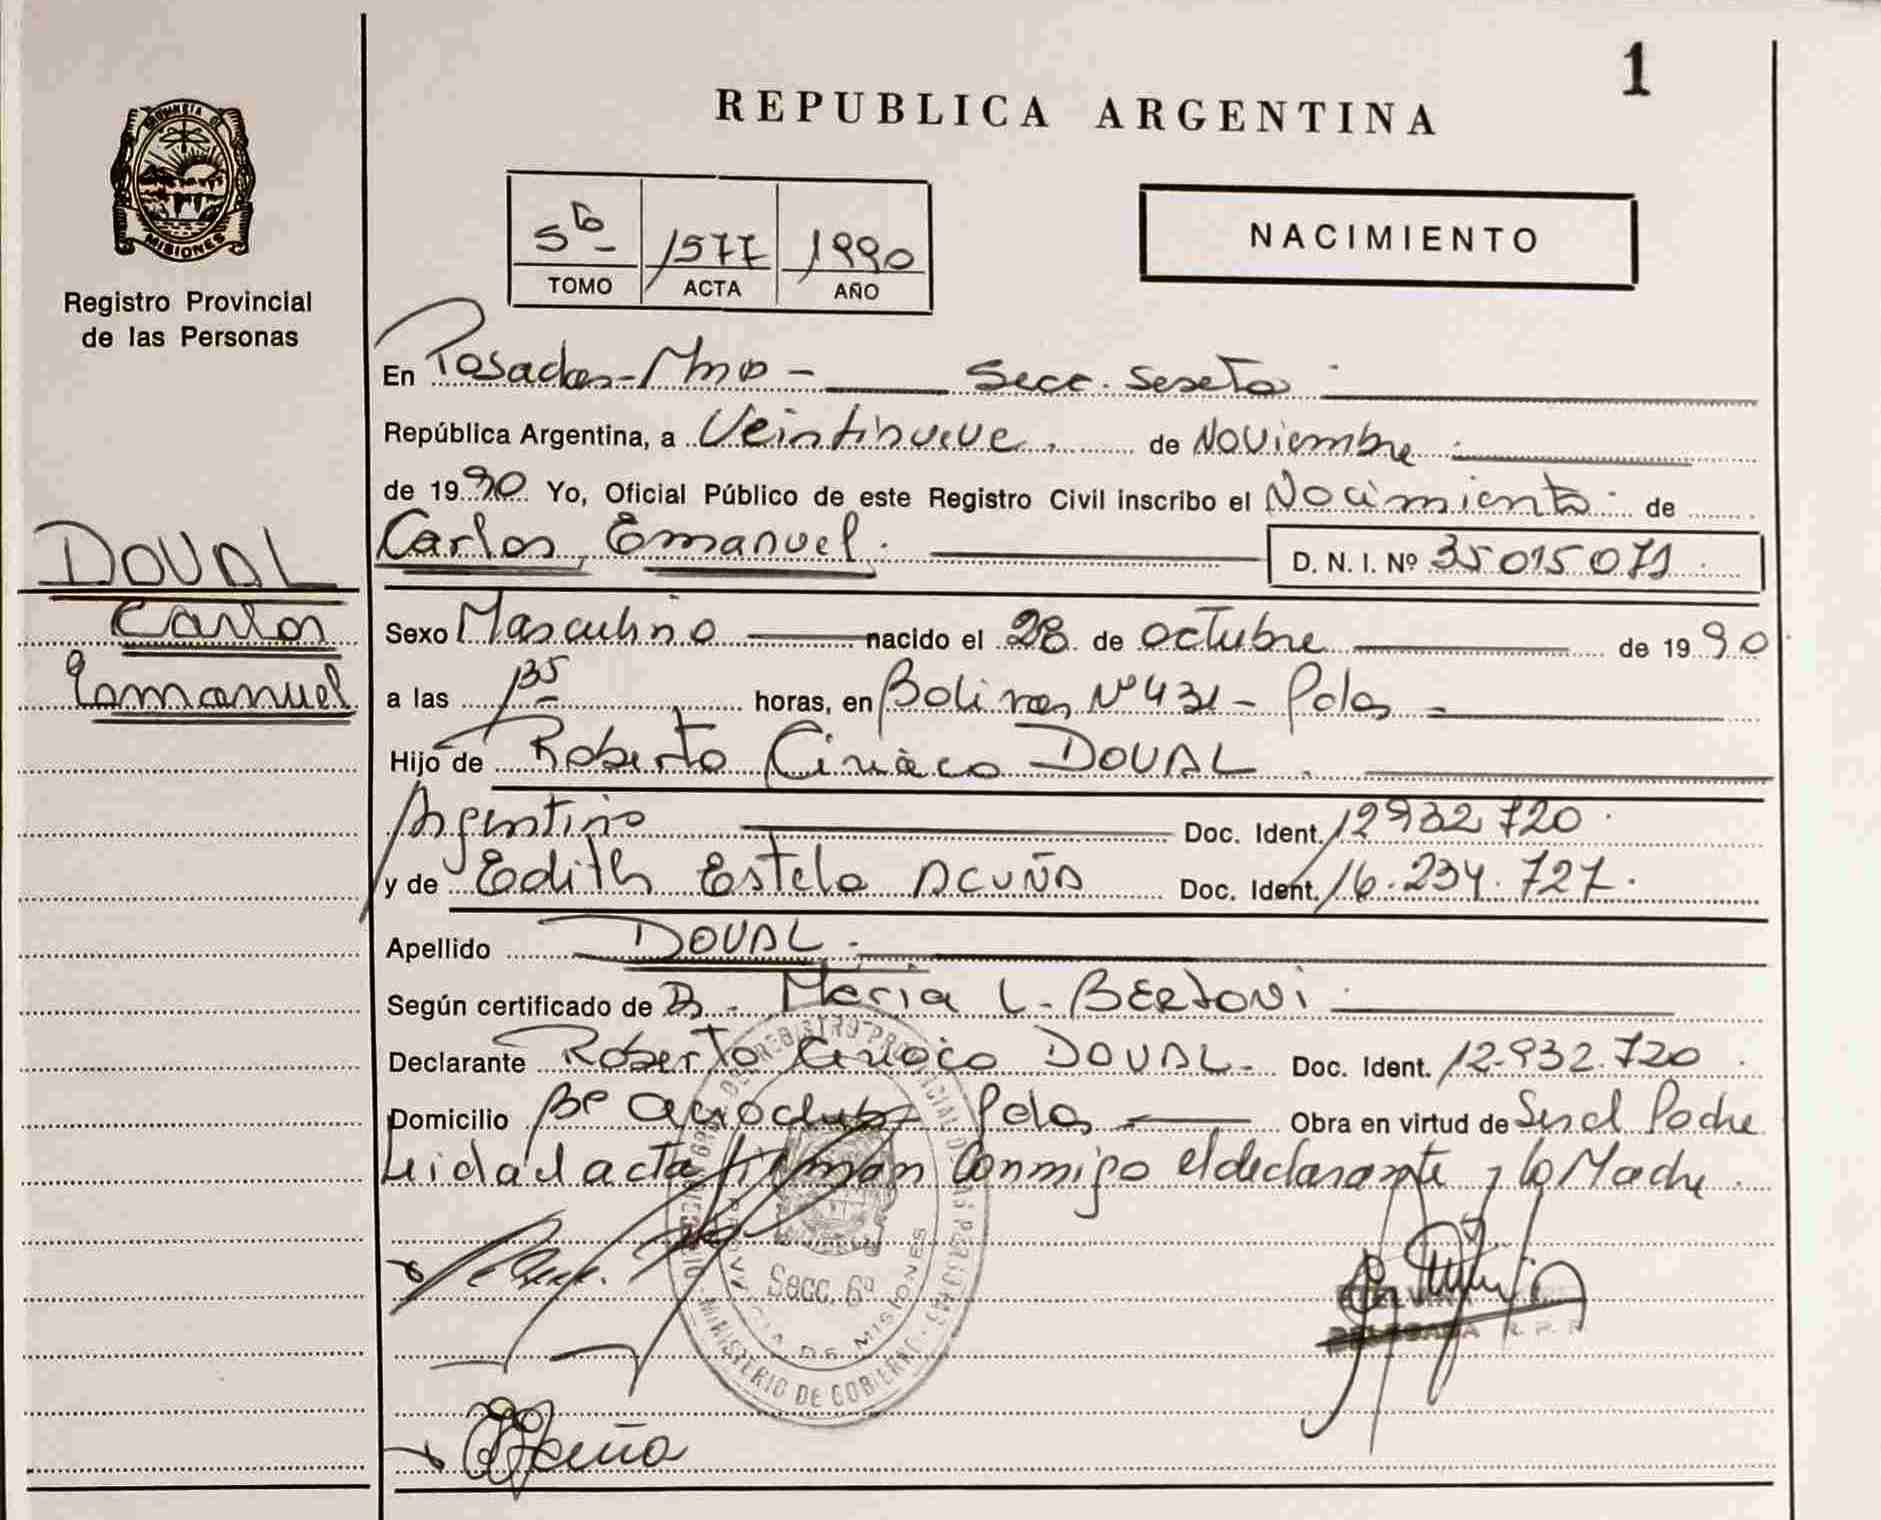 1
REPUBLICA ARGENTINA
PROVINCIA D
MISIONES
Registro Provincial
de las Personas
1577 1990
TOMO ACTA AÑO
NACIMIENTO
En Posadas - Mnes - Secc. Sexta
República Argentina, a Veintinueve de Noviembre
de 1990 Yo, Oficial Público de este Registro Civil inscribo el Nacimiento de
Carlos Emanuel. D. N. I. Nº 35015071
DOUAL
Carlos
Emmanuel
Sexo Masculino nacido el 28 de octubre de 1990
a las 1 35 horas, en Bolivar Nº 431 - Pdas
Hijo de Roberto Ciriaco DOUAL
Argentino Doc. Ident. 12932.720
y de Edith Estela ACUÑA Doc. Ident. 16.234.727.
Apellido DOUAL.
Según certificado de Maria L. BERTONI
Declarante Roberto Ciriaco DOUAL. Doc. Ident. 12.932.720
Domicilio Bº Aeroclub Pdas Obra en virtud de Ser el Padre
Leida el acta firman Conmigo el declarante y la Madre
Secc. 6ª
PROVINCIA DE MISIONES
MINISTERIO DE GOBIERNO
DELEGADA R. P. P.